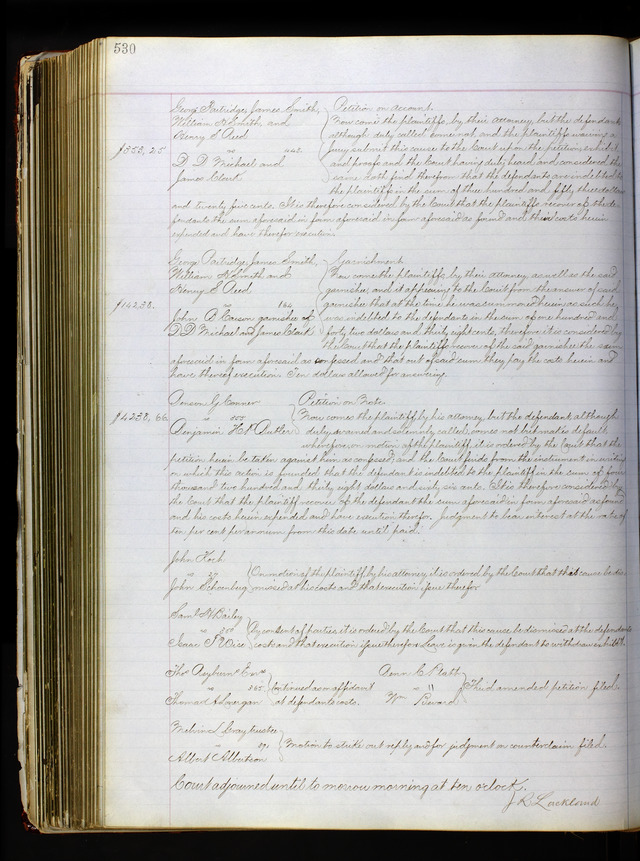 530
George Partridge, James Smith,
William H Smith and
Henry S Reed
$353,25 vs
D. D. Michael and
James Clark
Petition on account.
Now come the plaintiffs, by their attorney, but the defendants
although duly called come not and the plaintiffs waiving a
jury submit this cause to the Court upon the petition, exhibit
and proofs and the Court having duly heard and considered the
same doth find therefrom that the defendants are indebted to
the plaintiff in the sum of three hundred and fifty three dollars
and twenty five cents. It is therefore considered by the Court that the plaintiffs recover of the de-
fendants the sum aforesaid in form aforesaid in form aforesaid as found and their costs herein
expended and have therefor execution
George Partridge, James Smith,
William H Smith and
Henry S Reed
$142.38. vs 144
John B Cason garnishee of
D. D. Michael and James Clark
Garnishment
Now come the plaintiffs, by their attorney, as well as the said
garnishee, and it appearing to the Court from the answer of said
garnishee that at the time he was summoned herein as such he
was indebted to the defendants in the sum of one hundred and
forty two dollars and thirty eight cents, therefore it is considered by
the Court that the plaintiffs recover of the said garnishee the sum
aforesaid in form aforesaid as confessed and that out of said sum they pay the costs herein and
have thereof execution. Ten dollars allowed for answering.
Anson G Conner
$4238,66 vs 555
Benjamin H Dutler
Petition on Note
Now comes the plaintiff by his attorney, but the defendant although
duly served and solemnly called, comes not but made default
wherefore on motion of the plaintiff, it is ordered by the Court that the
petition herein be taken against him as confessed; and the Court finds from the instrument in writing
on which this action is founded, that the defendant is indebted to the plaintiff in the sum of four
thousand two hundred and thirty eight dollars and sixty six cents. It is therefore considered by
the Court that the plaintiff recover of the defendant the sum aforesaid in form aforesaid as found
and his costs herein expended and have execution therefor. Judgment to bear interest at the rate of
ten per cent per annum from this date until paid.
John Koch
vs
John Schonbug
On motion of the plaintiff by his attorney, it is ordered by the Court that this cause be dis-
missed at his costs and that execution issue therefor
Saml. W Bailey
vs
Isaac S Wise
By consent of parties it is ordered by the Court that this cause be dismissed at the defendants
costs and that execution issue therefor. Leave is given the defendant to withdraw exhibit.
Thos Ayburn Exr
vs 865
Thomas Lonergan
Continued on affidavit
at defendants costs.
Anna C Platt
vs 11
Wm
Third amended petition filed
Melvin L Gray trustee
vs 891
Albert Albertson
Motion to strike out reply and for judgment on counterclaim filed.
Court adjourned until to morrow morning at ten oclock.
J R Lackland